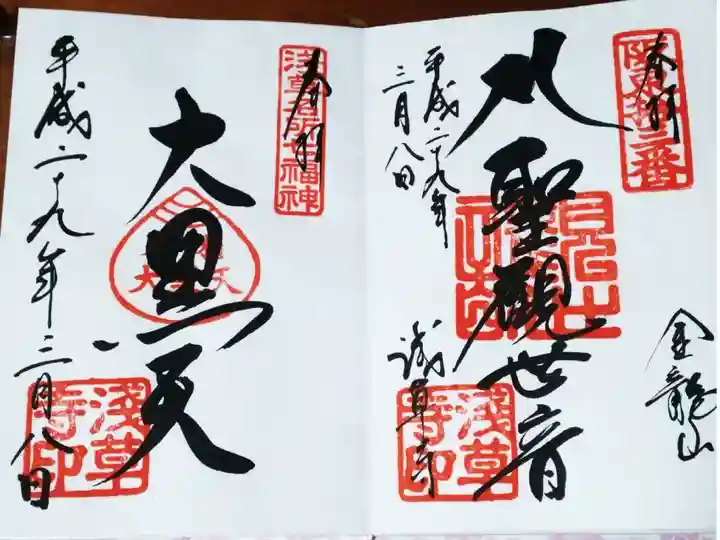 奉拝
坂東拾三番
聖観世音
金龍山
浅草寺
平成二十九年
三月八日
浅草寺印
奉拝
浅草名所七福神
大黒天
平成二十九年三月八日
浅草寺印